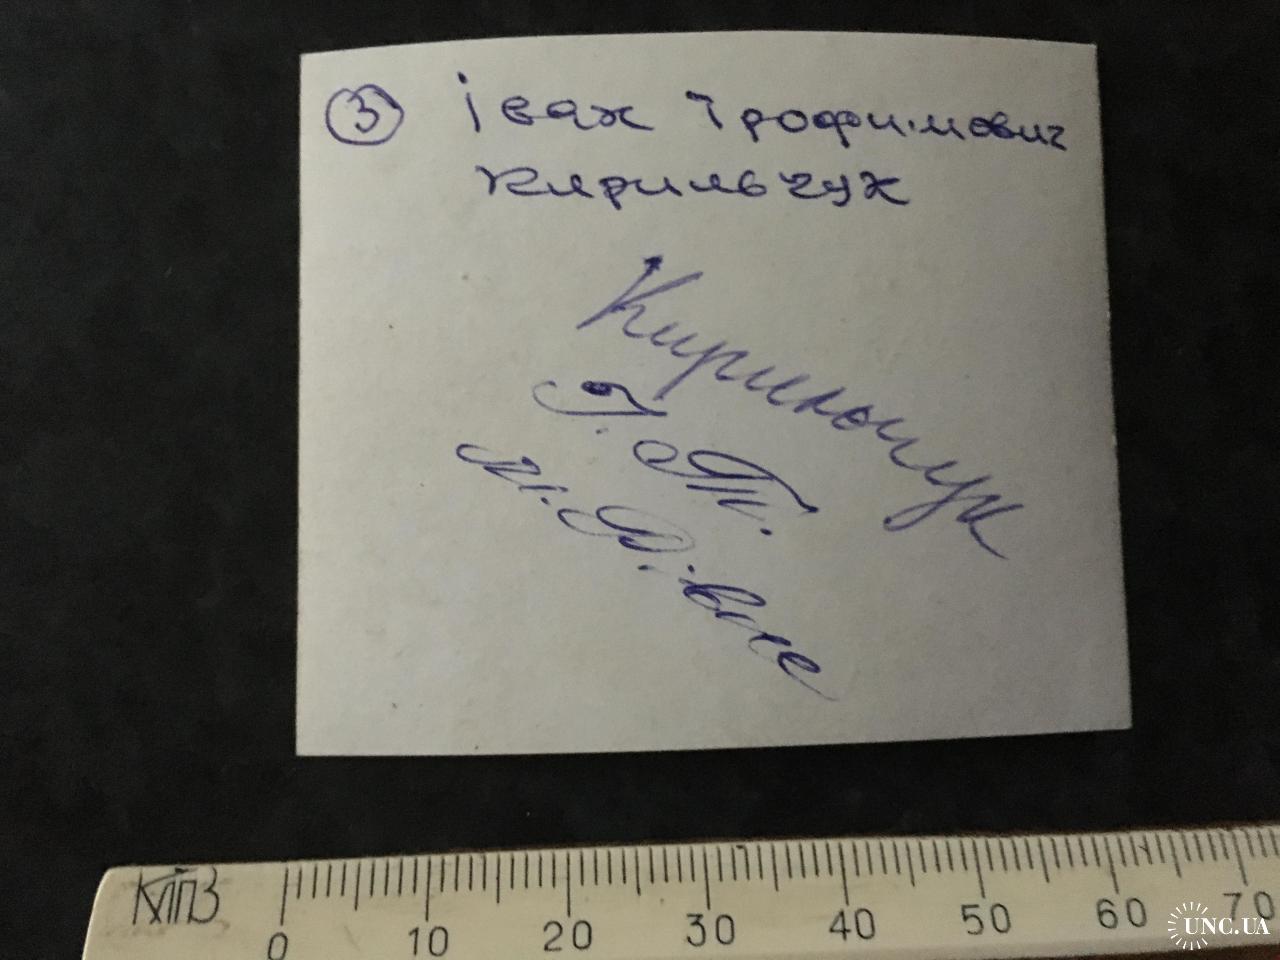 3 Іван Трофимович
Кирильчук
Кирильчук
І. Т.
м. Рівне
КПЗ
0 10 20 30 40 50 60 70
UNC.UA